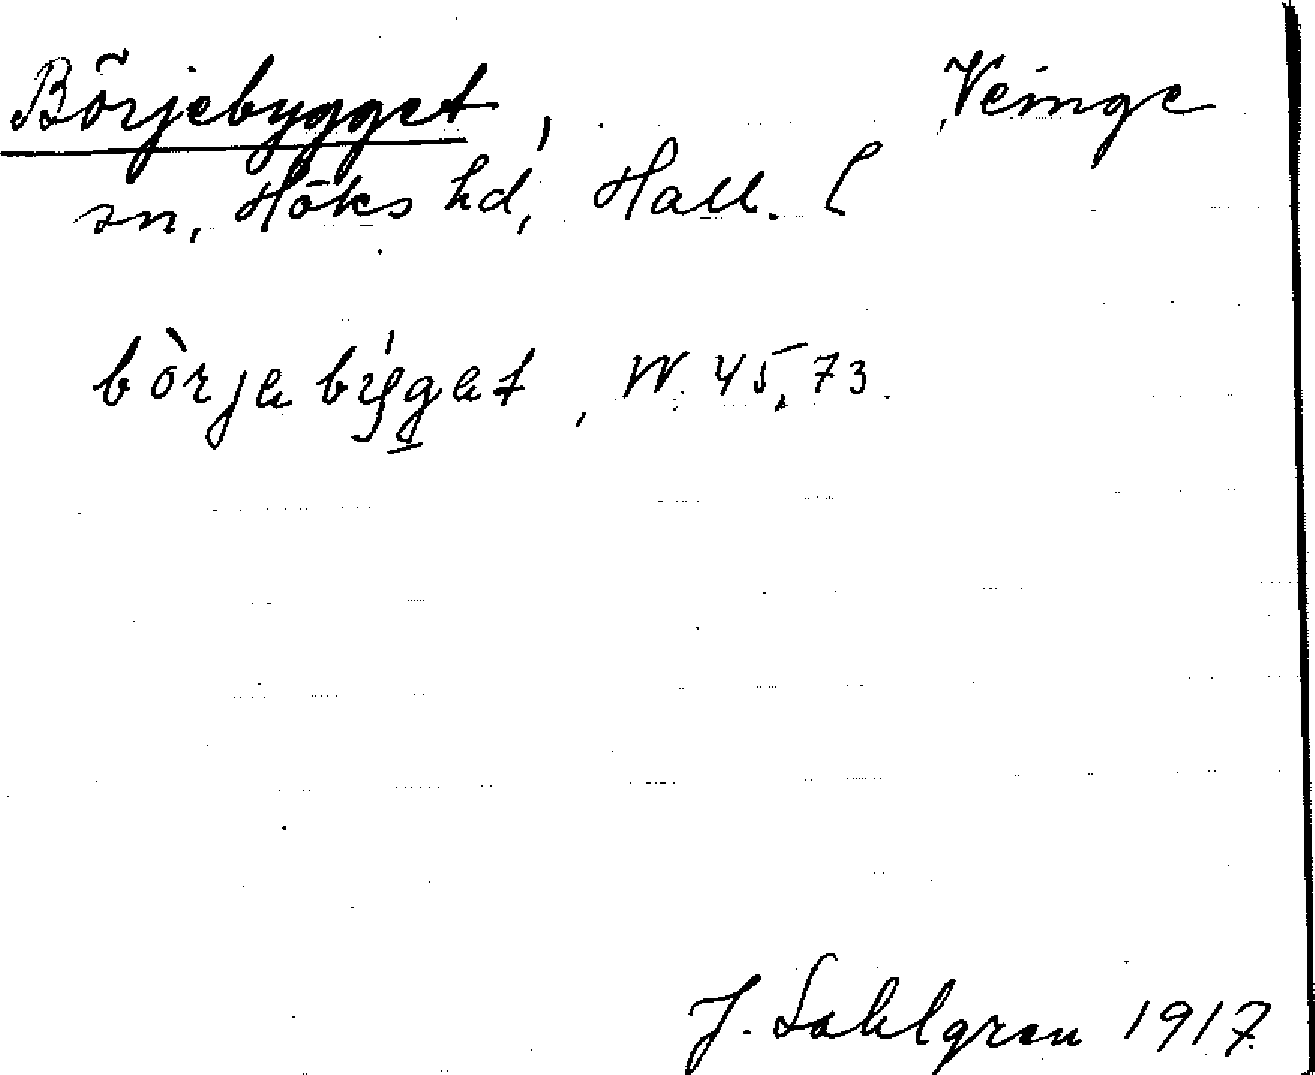 Börjebygget, Veinge
sn, Höks hd, Hall. l
bòrjabýgat, W. 45,73.
J. Sahlgren 1917